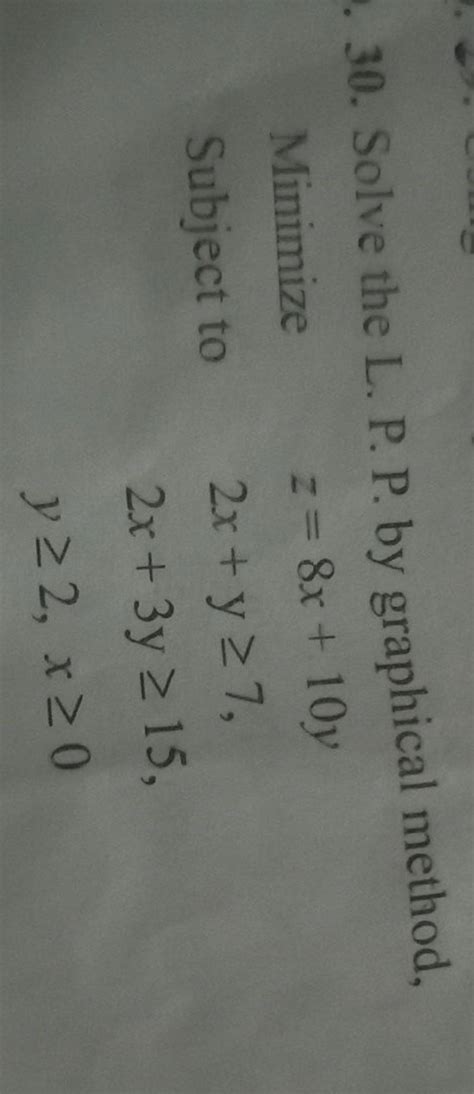 30. Solve the L. P. P. by graphical method,
Minimize z = 8x + 10y
Subject to 2x + y ≥ 7,
2x + 3y ≥ 15,
y ≥ 2, x ≥ 0